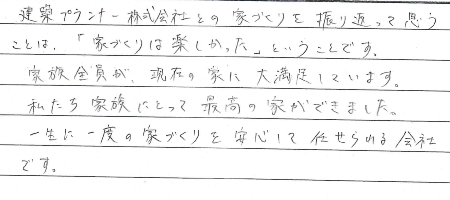 建築プランナー株式会社との家づくりを振り返って思う
ことは、「家づくりは楽しかった」ということです。
家族全員が、現在の家に大満足しています。
私たち家族にとって最高の家ができました。
一生に一度の家づくりを安心して任せられる会社
です。